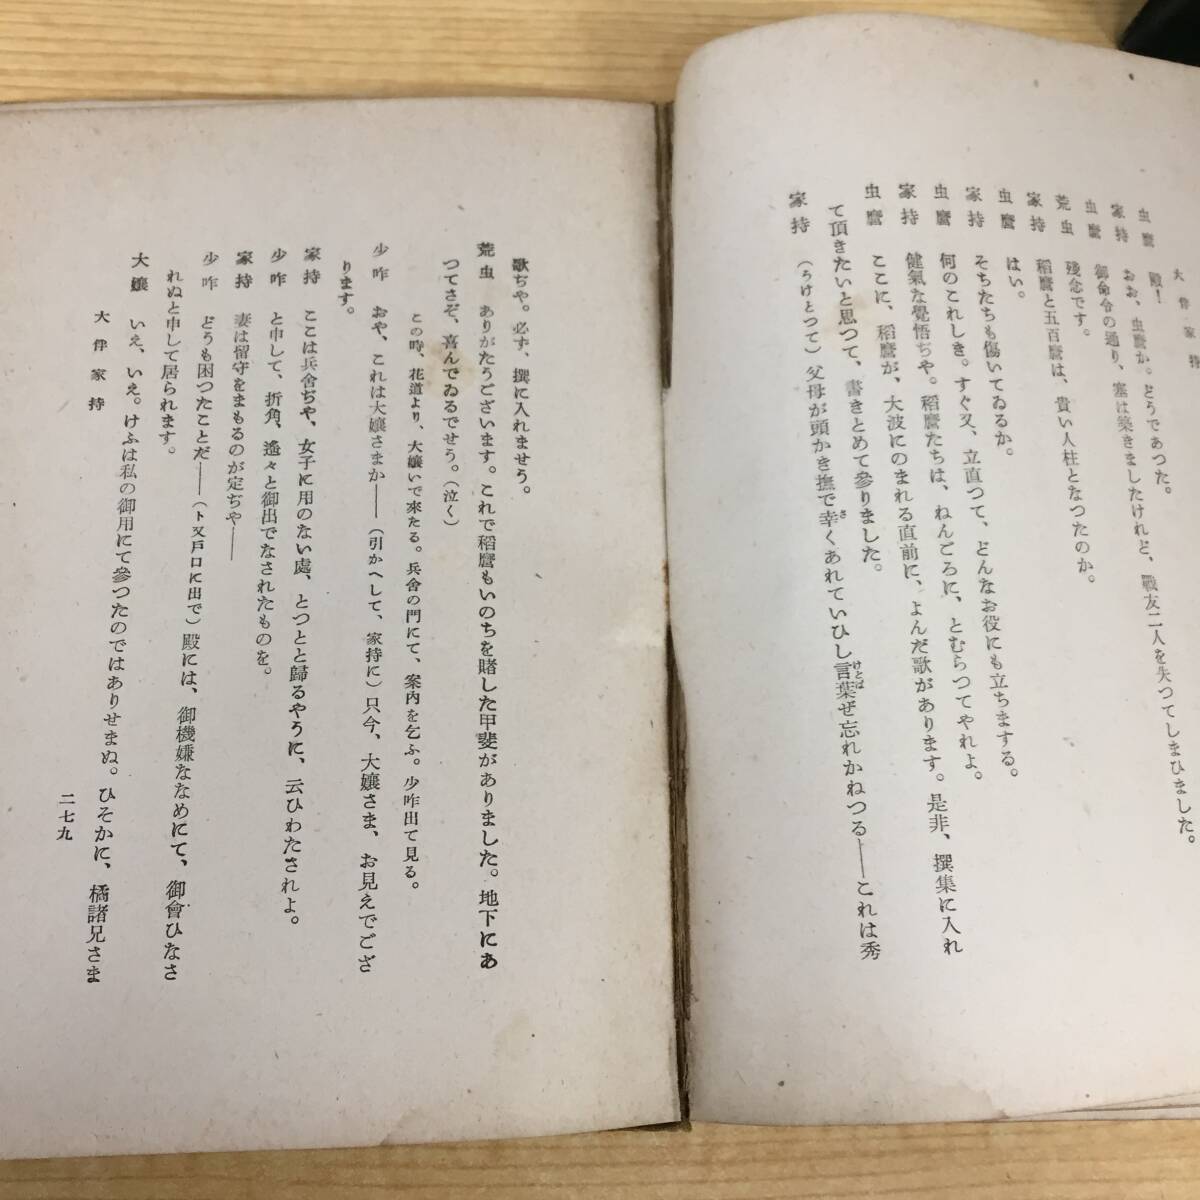 大伴家持
虫麿　殿！
家持　おお、虫麿か。どうであつた。
虫麿　御命令の通り、塞は築きましたけれど、戰友二人を失つてしまひました。
荒虫　殘念です。
家持　稻麿と五百麿は、貴い人柱となつたのか。
虫麿　はい。
家持　そちたちも傷いてゐるか。
虫麿　何のこれしき。すぐ又、立直つて、どんなお役にも立ちまする。
家持　健氣な覺悟ぢや。稻麿たちは、ねんごろに、とむらつてやれよ。
虫麿　ここに、稻麿が、大波にのまれる直前に、よんだ歌があります。是非、撰集に入れ
て頂きたいと思つて、書きとめて參りました。
家持　（うけとつて）父母が頭かき撫で幸くあれていひし言葉ぜ忘れかねつる――これは秀
さ
けとば
歌ぢや。必ず、撰に入れませう。
荒虫　ありがたうございます。これで稻麿もいのちを賭した甲斐がありました。地下にあ
つてさぞ、喜んでゐるでせう。（泣く）
この時、花道より、大孃いで來たる。兵舍の門にて、案內を乞ふ。少咋出て見る。
少咋　おや、これは大孃さまか――（引かへして、家持に）只今、大孃さま、お見えでござ
ります。
家持　ここは兵舍ぢや、女子に用のない處、とつとと歸るやうに、云ひわたされよ。
少咋　と申して、折角、遙々と御出でなされたものを。
家持　妻は留守をまもるのが定ぢや――
少咋　どうも困つたことだ――（ト又戶口に出で）殿には、御機嫌ななめにて、御會ひなさ
れぬと申して居られます。
大孃　いえ、いえ。けふは私の御用にて參つたのではありせまぬ。ひそかに、橘諸兄さま
大伴家持
二七九